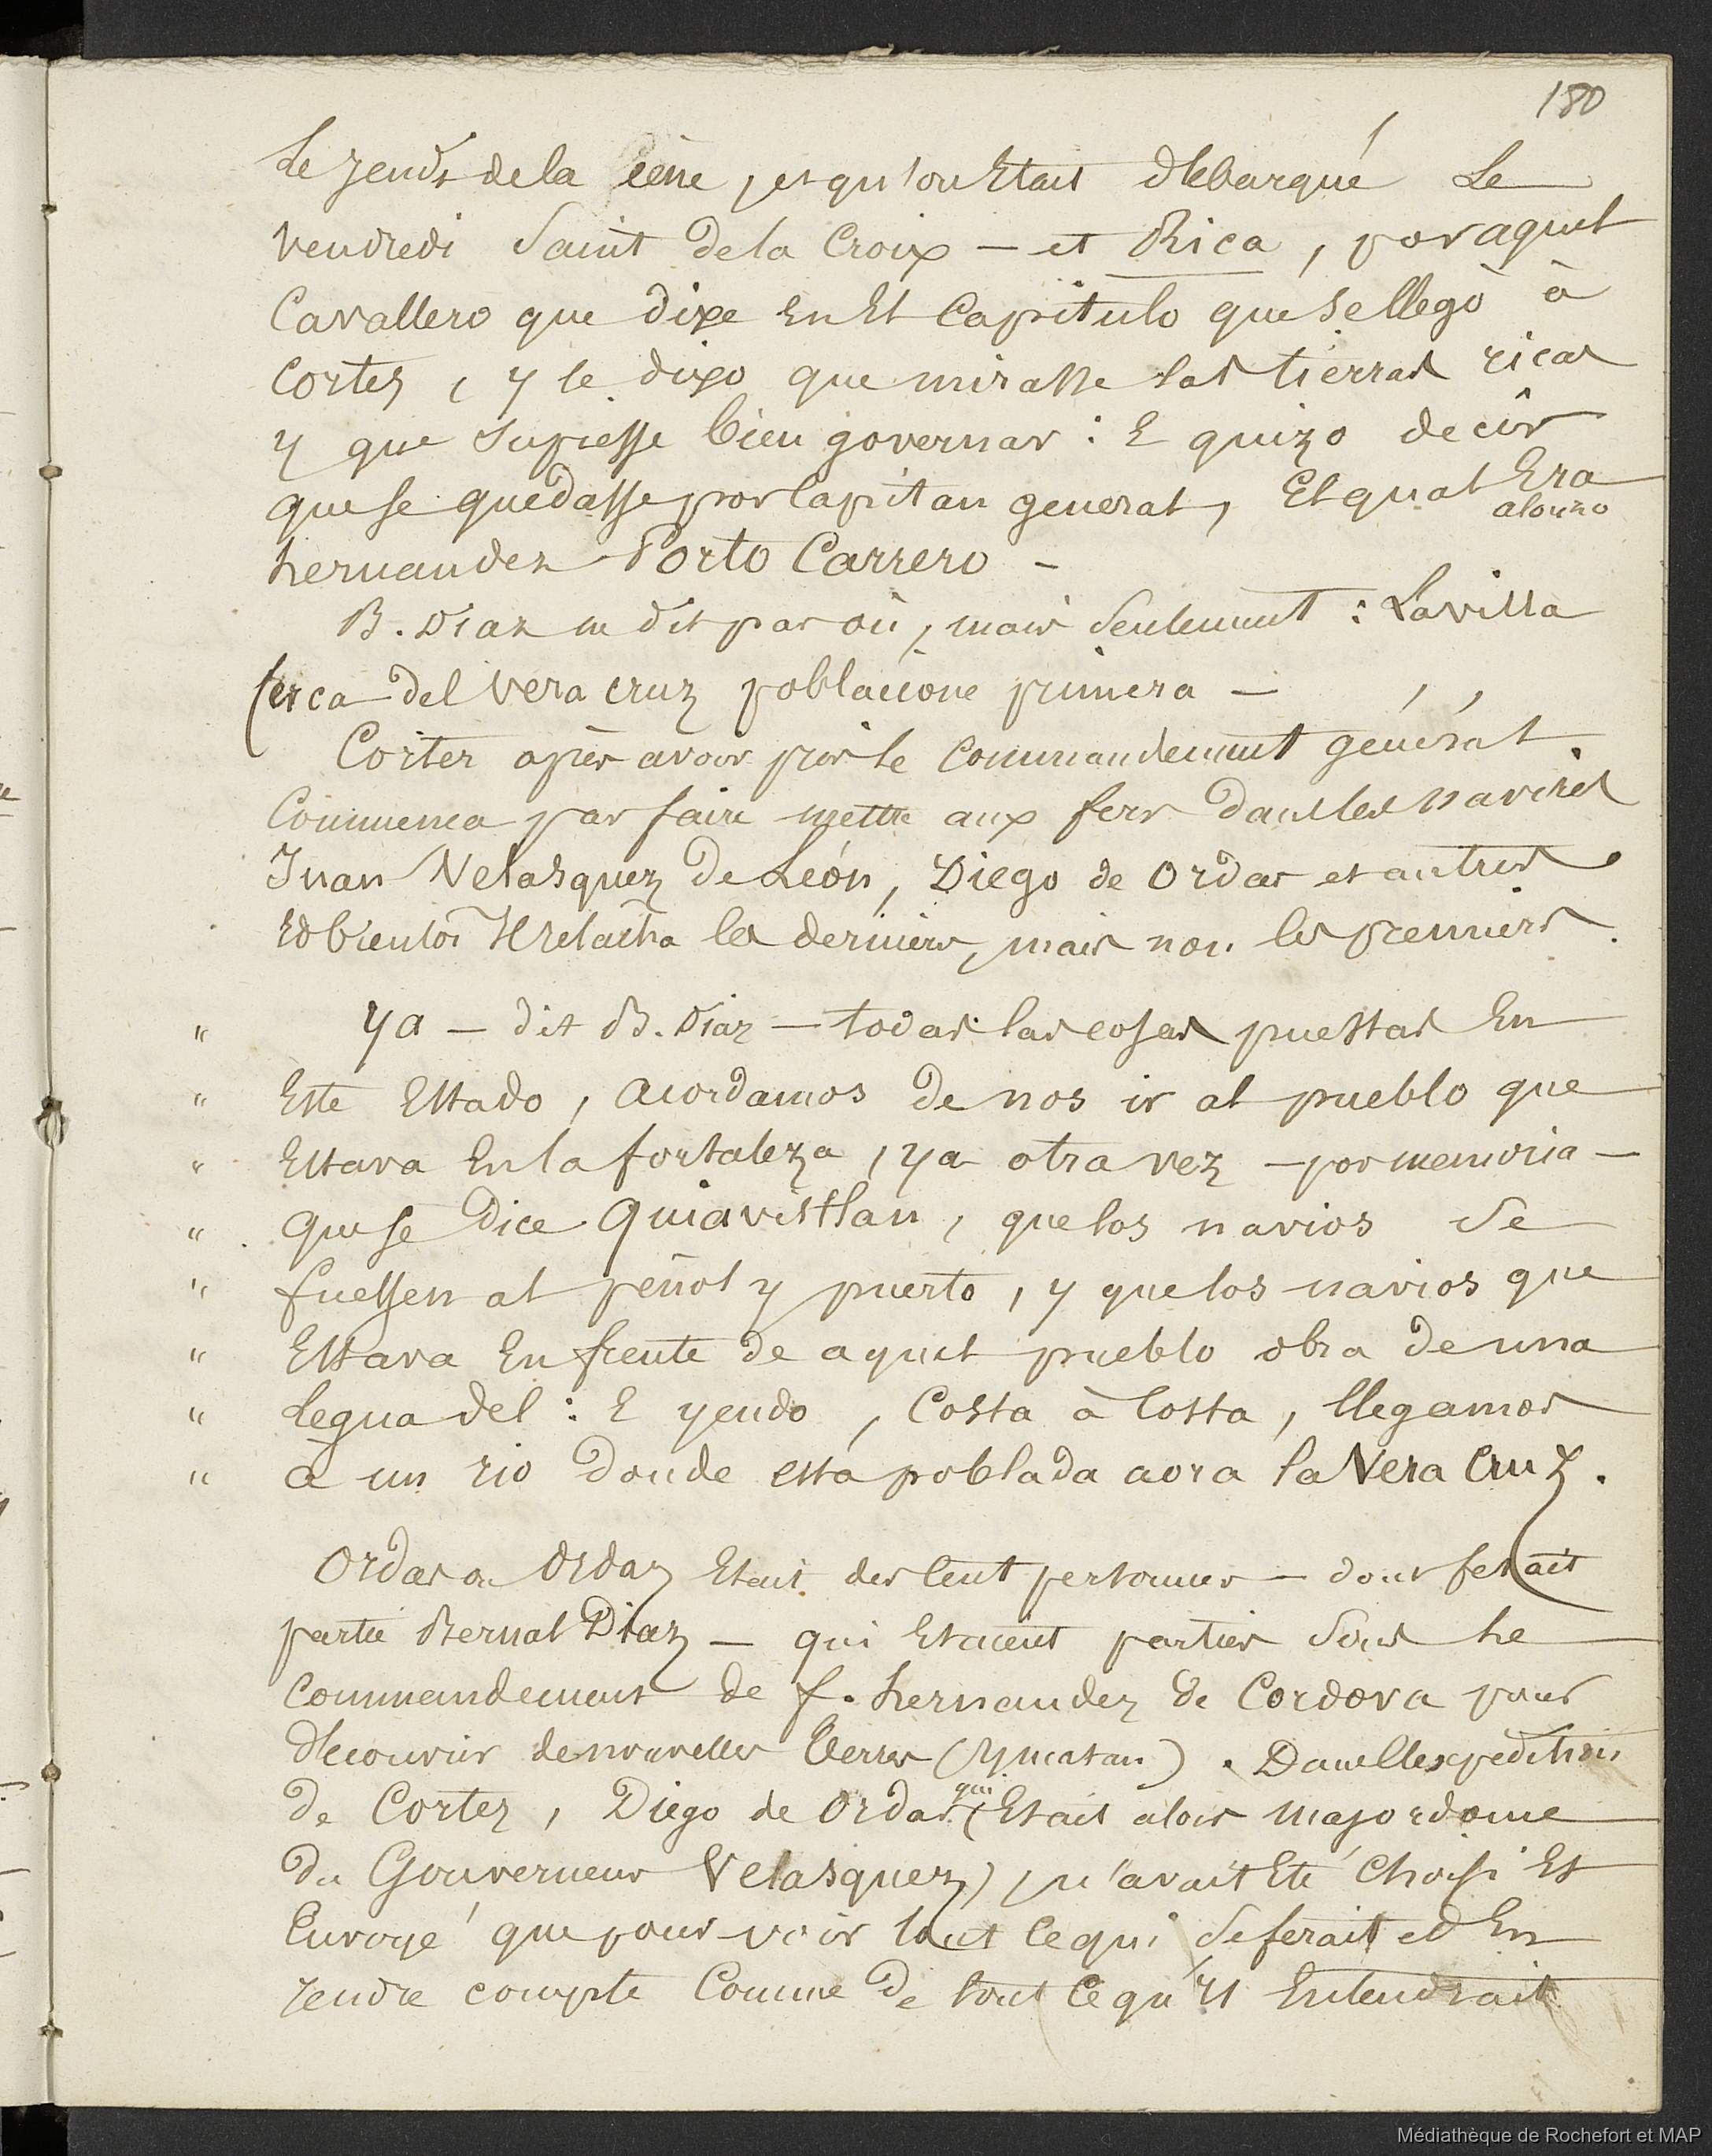 180
Le jeudi de la Cène, et qu'on Etait débarqué Le
vendredi Saint de la Croix — et Rica, por aquel
Cavallero que dixe En El Capitulo que se llegò à
Cortez, y le dixo que mirasse las tierras ricas
y que supiesse bien governar : E quizo decir
que se quedasse por Capitan general, El qual Era
alonzo
hernandez Porto Carrero –
B. Diaz ne dit pas où, mais Seulement : La villa
cerca del Vera cruz poblacione primera –
Cortez après avoir pris le Commandement général
Commença par faire mettre aux fers dans les navires
Juan Velasquez de León, Diego de Ordas et autres
Et bientôt Il relacha les derniers, mais non les premiers.
" Ya — dit B. Diaz — todas las cosas puestas En
" Este Estado, acordamos de nos ir al pueblo que
" Estava En la fortaleza, ya otra vez – por memoria –
" que se Dice Quiavistlan, que los navios Se
" fuessen al peñol y puerto, y que los navios que
" Estava En frente de aquel pueblo obra de una
" Legua del : E yendo, Costa à Costa, llegamos
" à un rio donde està poblada aora la Vera Cruz.
Ordas ou Ordaz Etait des Cent personnes — dont fesait
partie Bernal Diaz — qui Etaient parties Sous le
Commandement de f. hernandez de Cordova pour
découvrir de nouvelles Terres (Yucatan). Dans l'Expédition
qui
de Cortez, Diego de Ordas (Etait alors majordome
du Gouverneur Velasquez) n'avait Eté Choisi Et
Envoyé que pour voir tout Ce qui Se ferait et En
rendre compte Comme de tout Ce qu'Il Entendrait
Médiathèque de Rochefort et MAP